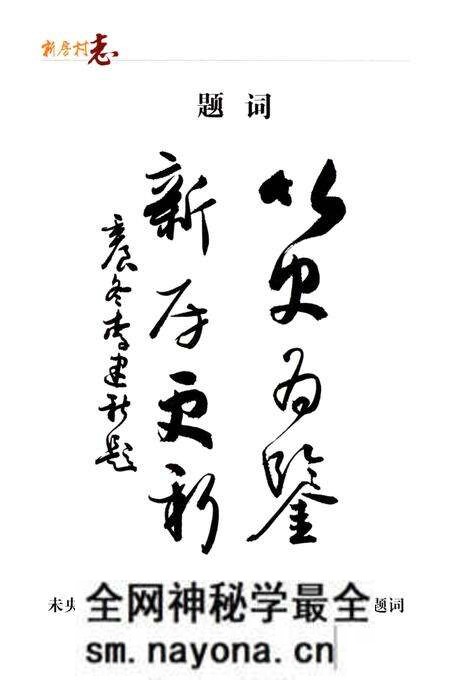 新房村志
题 词
以史为鉴
新房更新
壬辰冬李建题
未央
题词
全网神秘学最全
sm.nayona.cn